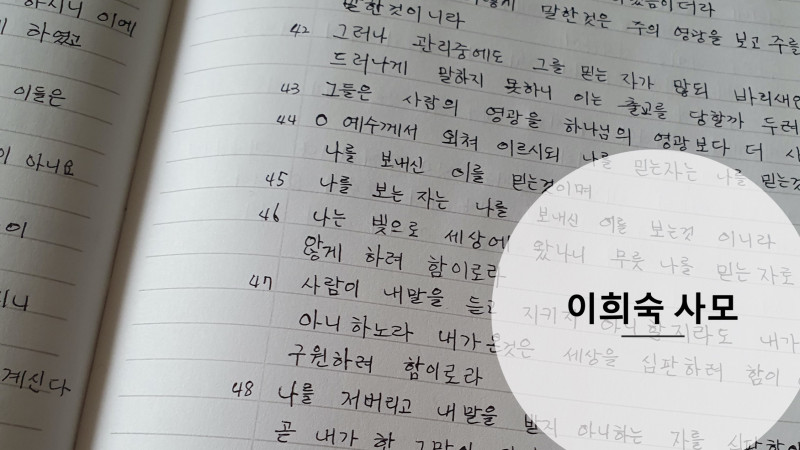 하시니 이에
하였고
이들은
아니요
이
계신다
말한것은 주의 영광을 보고 주를
42 그러나 관리중에도 그를 믿는 자가 많되 바리새인
드러나게 말하지 못하니 이는 출교를 당할까 두려
43 그들은 사람의 영광을 하나님의 영광보다 더 사
44 O 예수께서 외쳐 이르시되 나를 믿는자는 나를 믿는것
나를 보내신 이를 믿는것이며
45 나를 보는 자는 나를 보내신 이를 보는것 이니라
46 나는 빛으로 세상에 왔나니 무릇 나를 믿는자로
않게 하려 함이로라
47 사람이 내말을 듣고 지키지 아니할지라도 내가
아니하노라 내가 온것은 세상을 심판하려 함이
구원하려 함이로라
48 나를 저버리고 내말을 받지 아니하는 자를
곧 내가 한
이희숙 사모